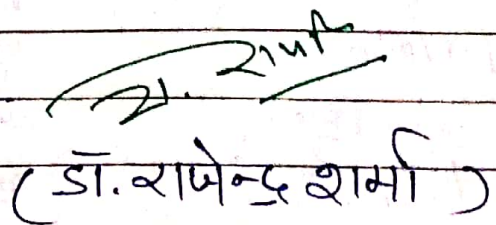 रा. शर्मा
(डॉ. राजेन्द्र शर्मा)